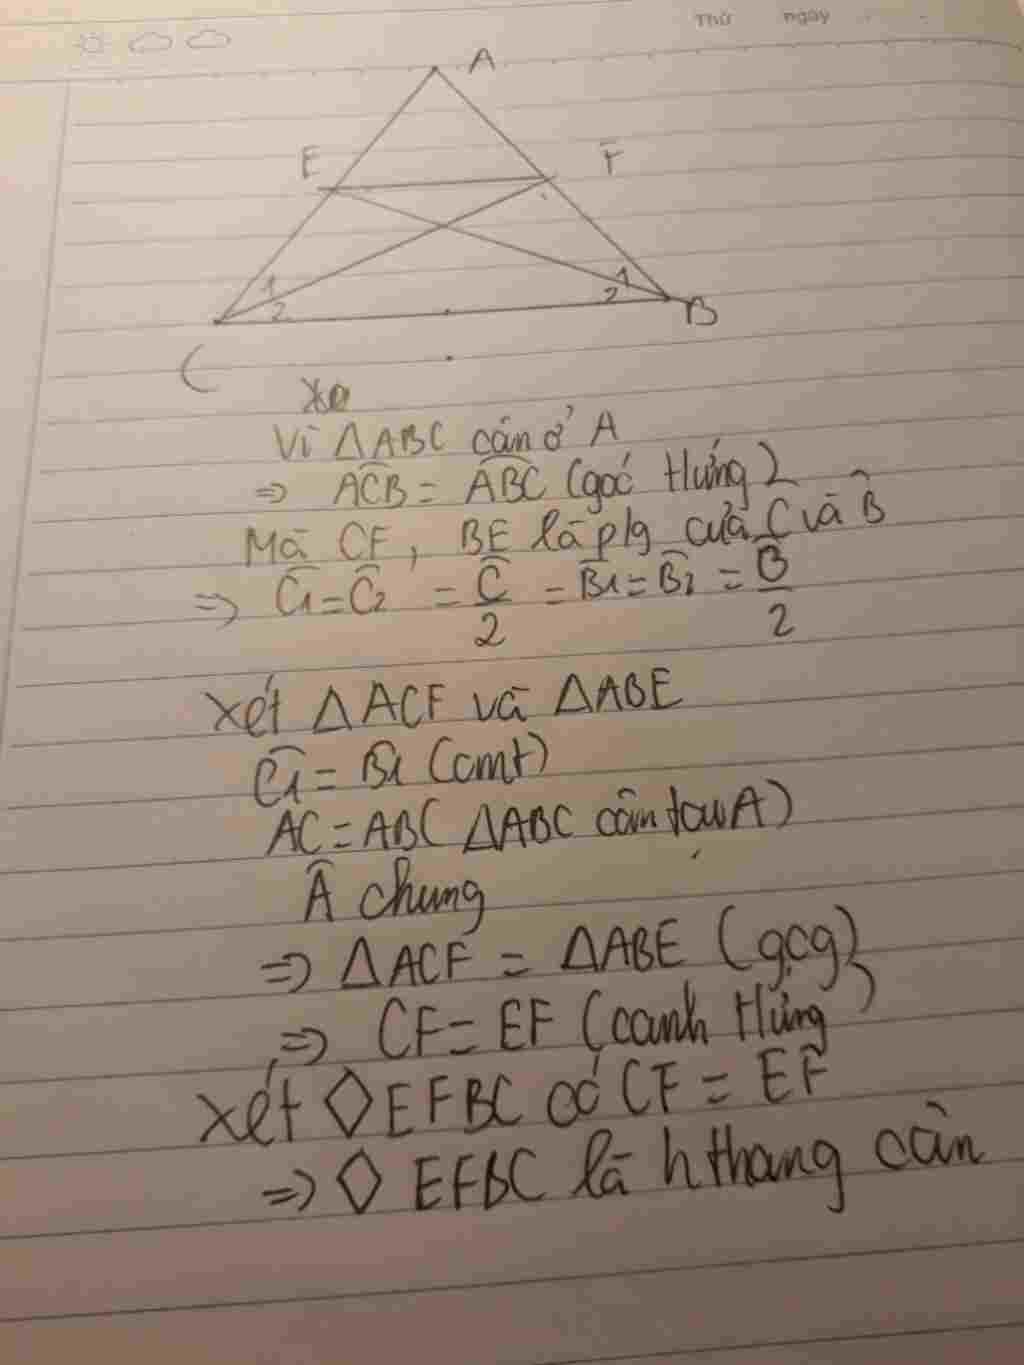 Thứ ngày
A
E F
1 1
2 2
C B
Vì ΔABC cân ở A
=> ACB = ABC (góc tứng)
Mà CF, BE là p/g của C và B̂
=> Ĉ1 = Ĉ2 = Ĉ/2 = B̂1 = B̂2 = B̂/2
Xét ΔACF và ΔABE
Ĉ1 = B1 (cmt)
AC = AB ( ΔABC cân tại A)
Â chung
=> ΔACF = ΔABE (gcg)
=> CF = EF (cạnh tứng)
Xét ◇EFBC có CF = EF
=> ◇ EFBC là hthang cân